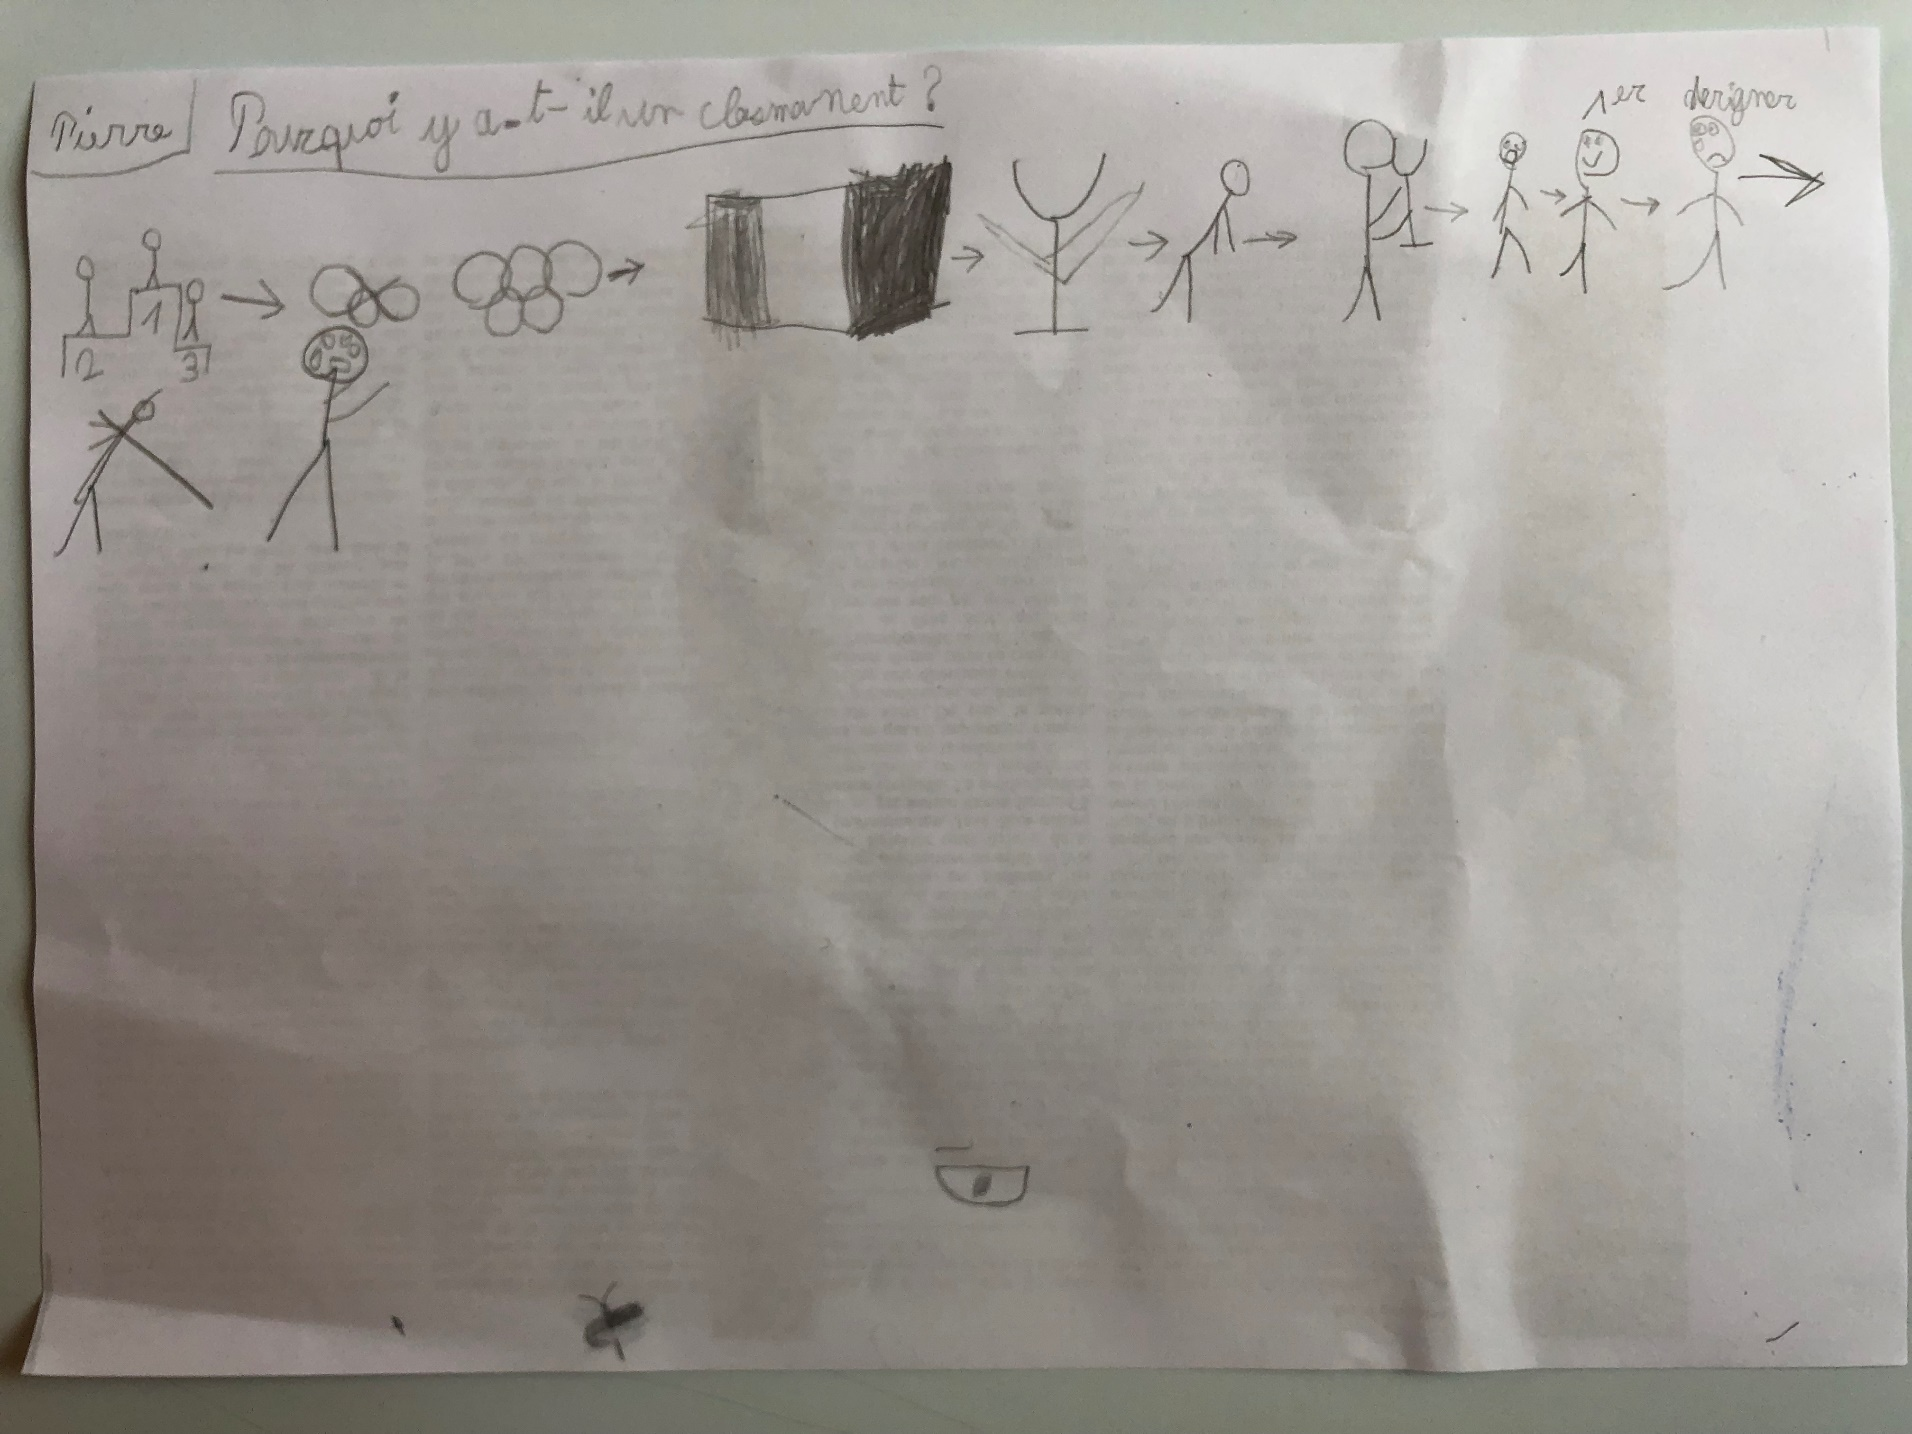 Pierre
Pourquoi y a-t-il un classmanent ?
1er derigner
1
2 3